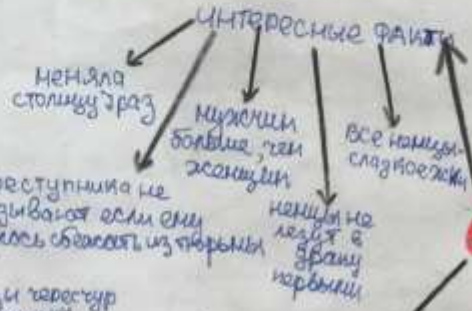 ИНТЕРЕСНЫЕ ФАКТЫ
меняла
столицу 7 раз
мужчин
больше, чем
женщин
все немцы-
сладкоежки
реступника не
зывают если ему
лось сбежать из тюрьмы
немцы не
лезут в
драку
первыми
цы чересчур